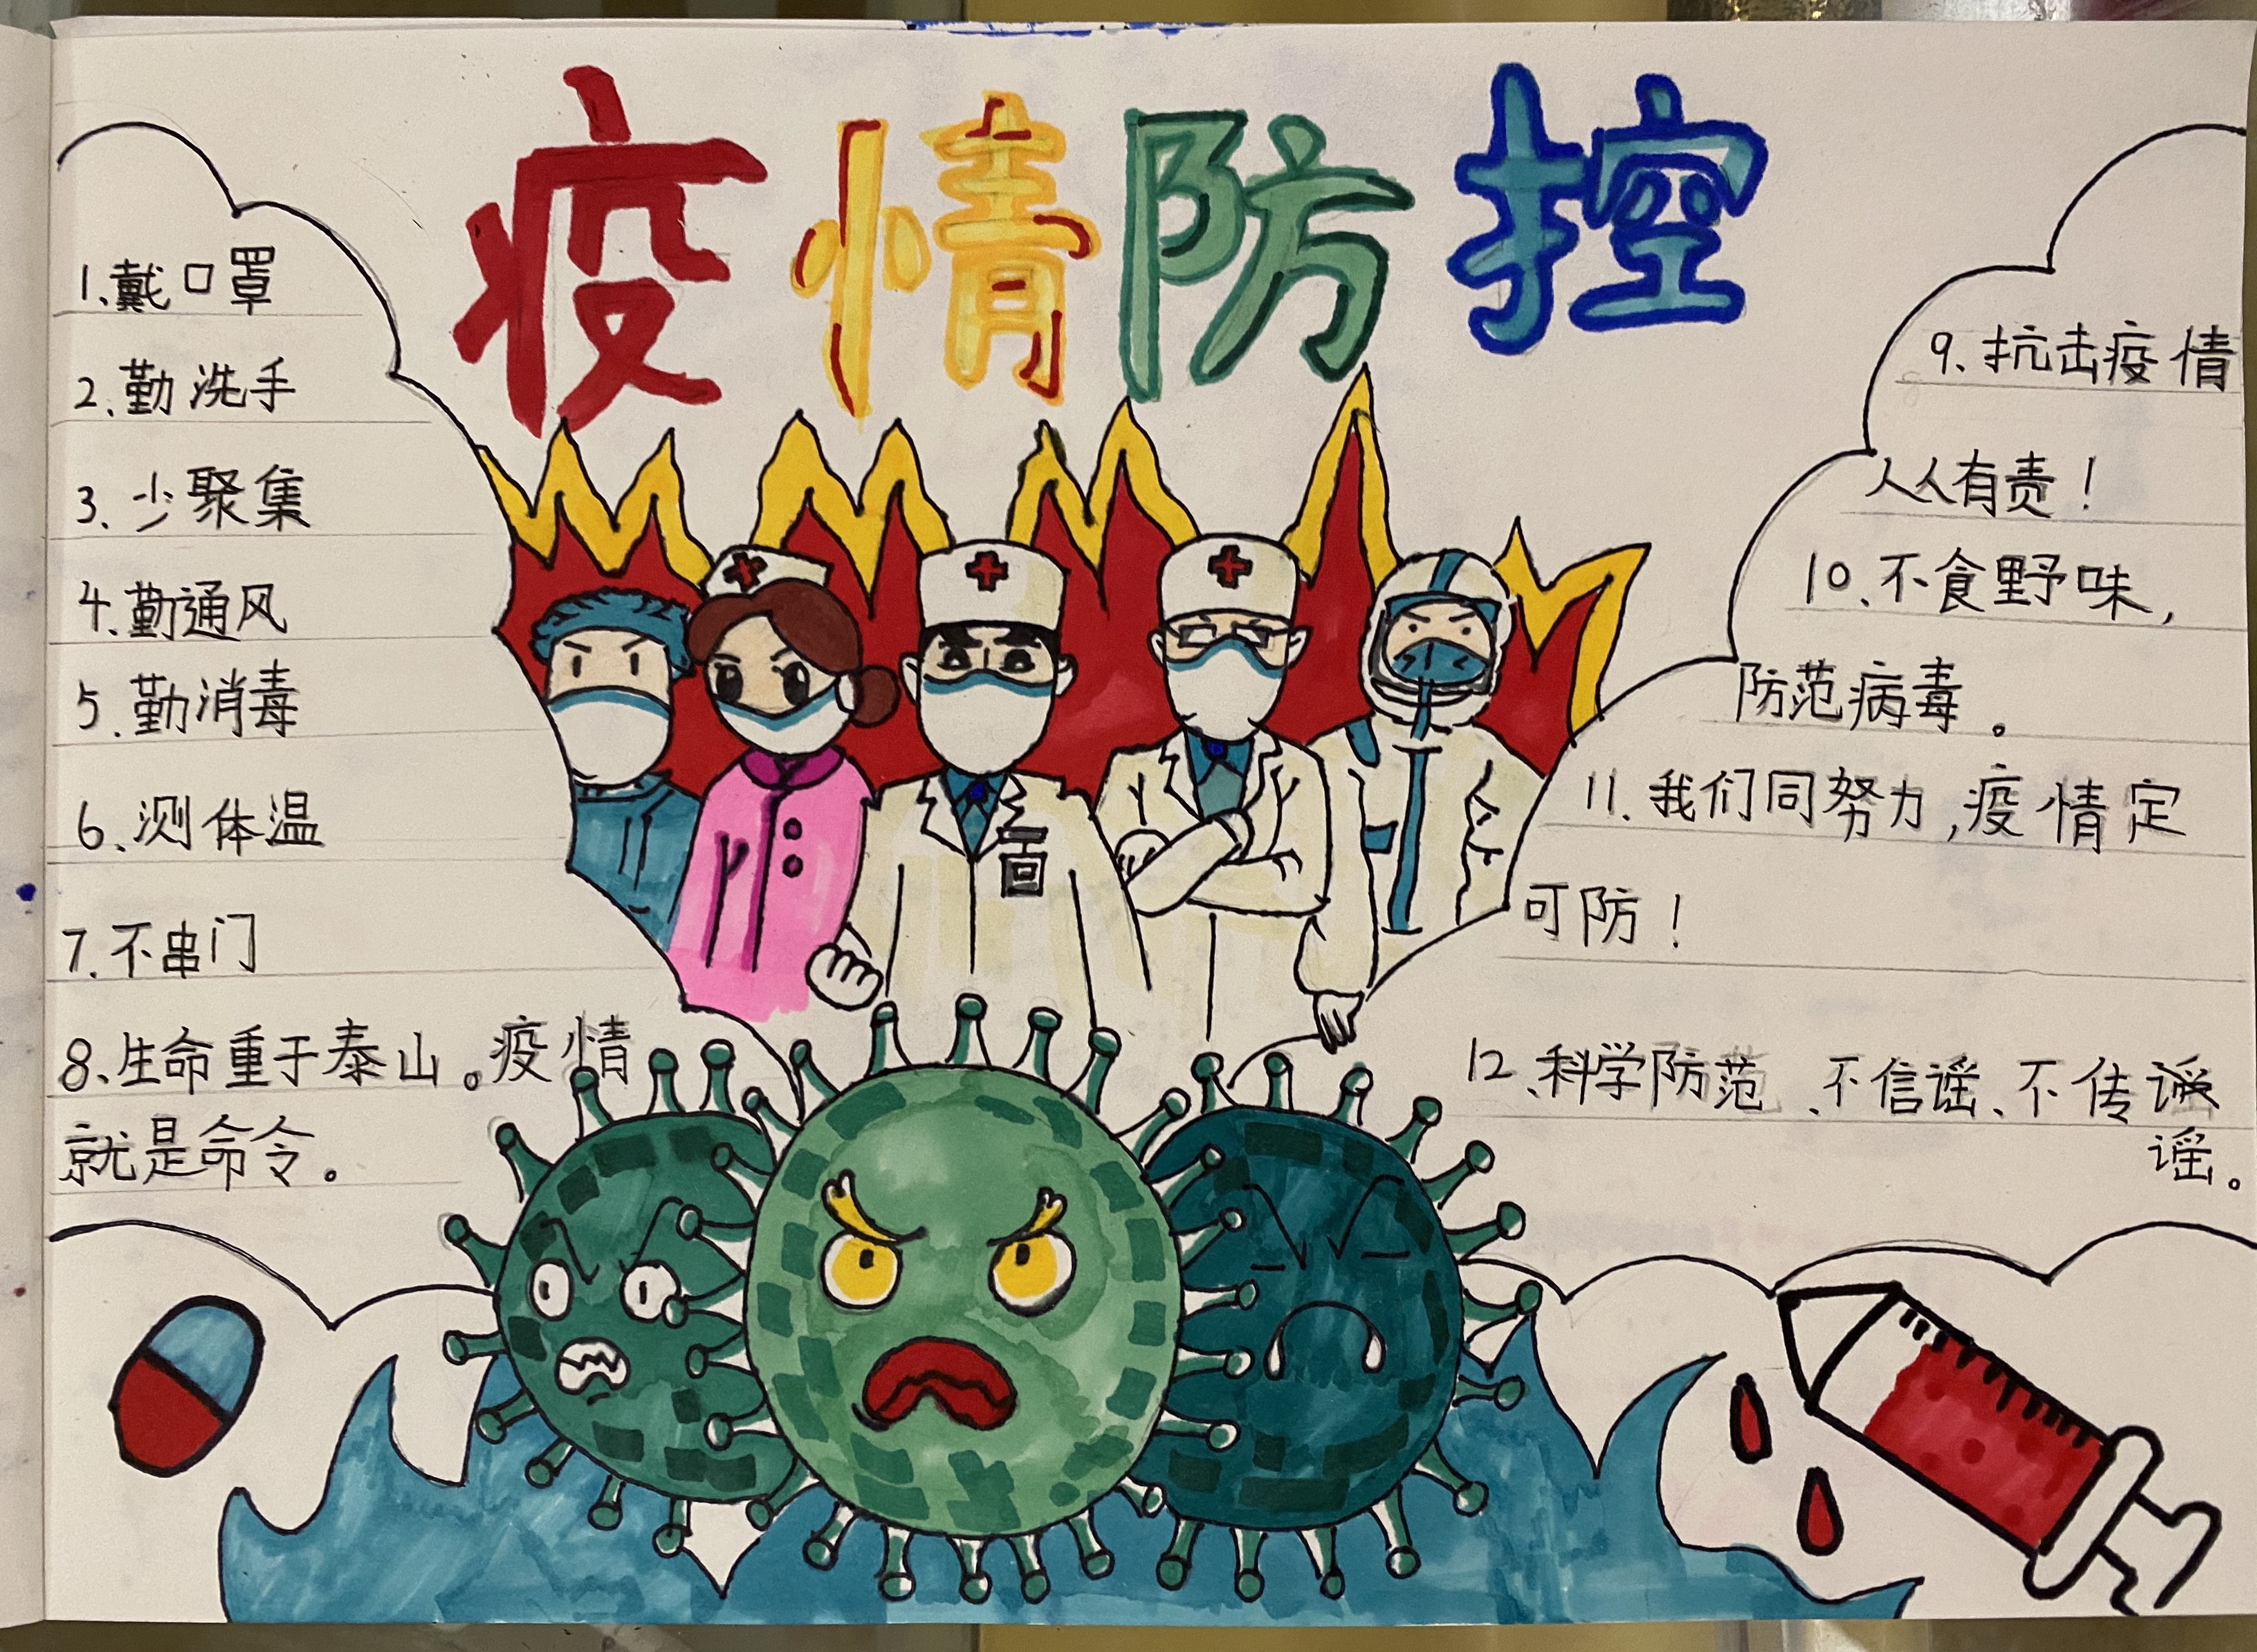 疫情防控
1.戴口罩
2.勤洗手
3.少聚集
4.勤通风
5.勤消毒
6.测体温
7.不串门
8.生命重于泰山。疫情
就是命令。
9.抗击疫情
人人有责！
10.不食野味，
防范病毒。
11.我们同努力,疫情定
可防！
12.科学防范、不信谣、不传
谣。